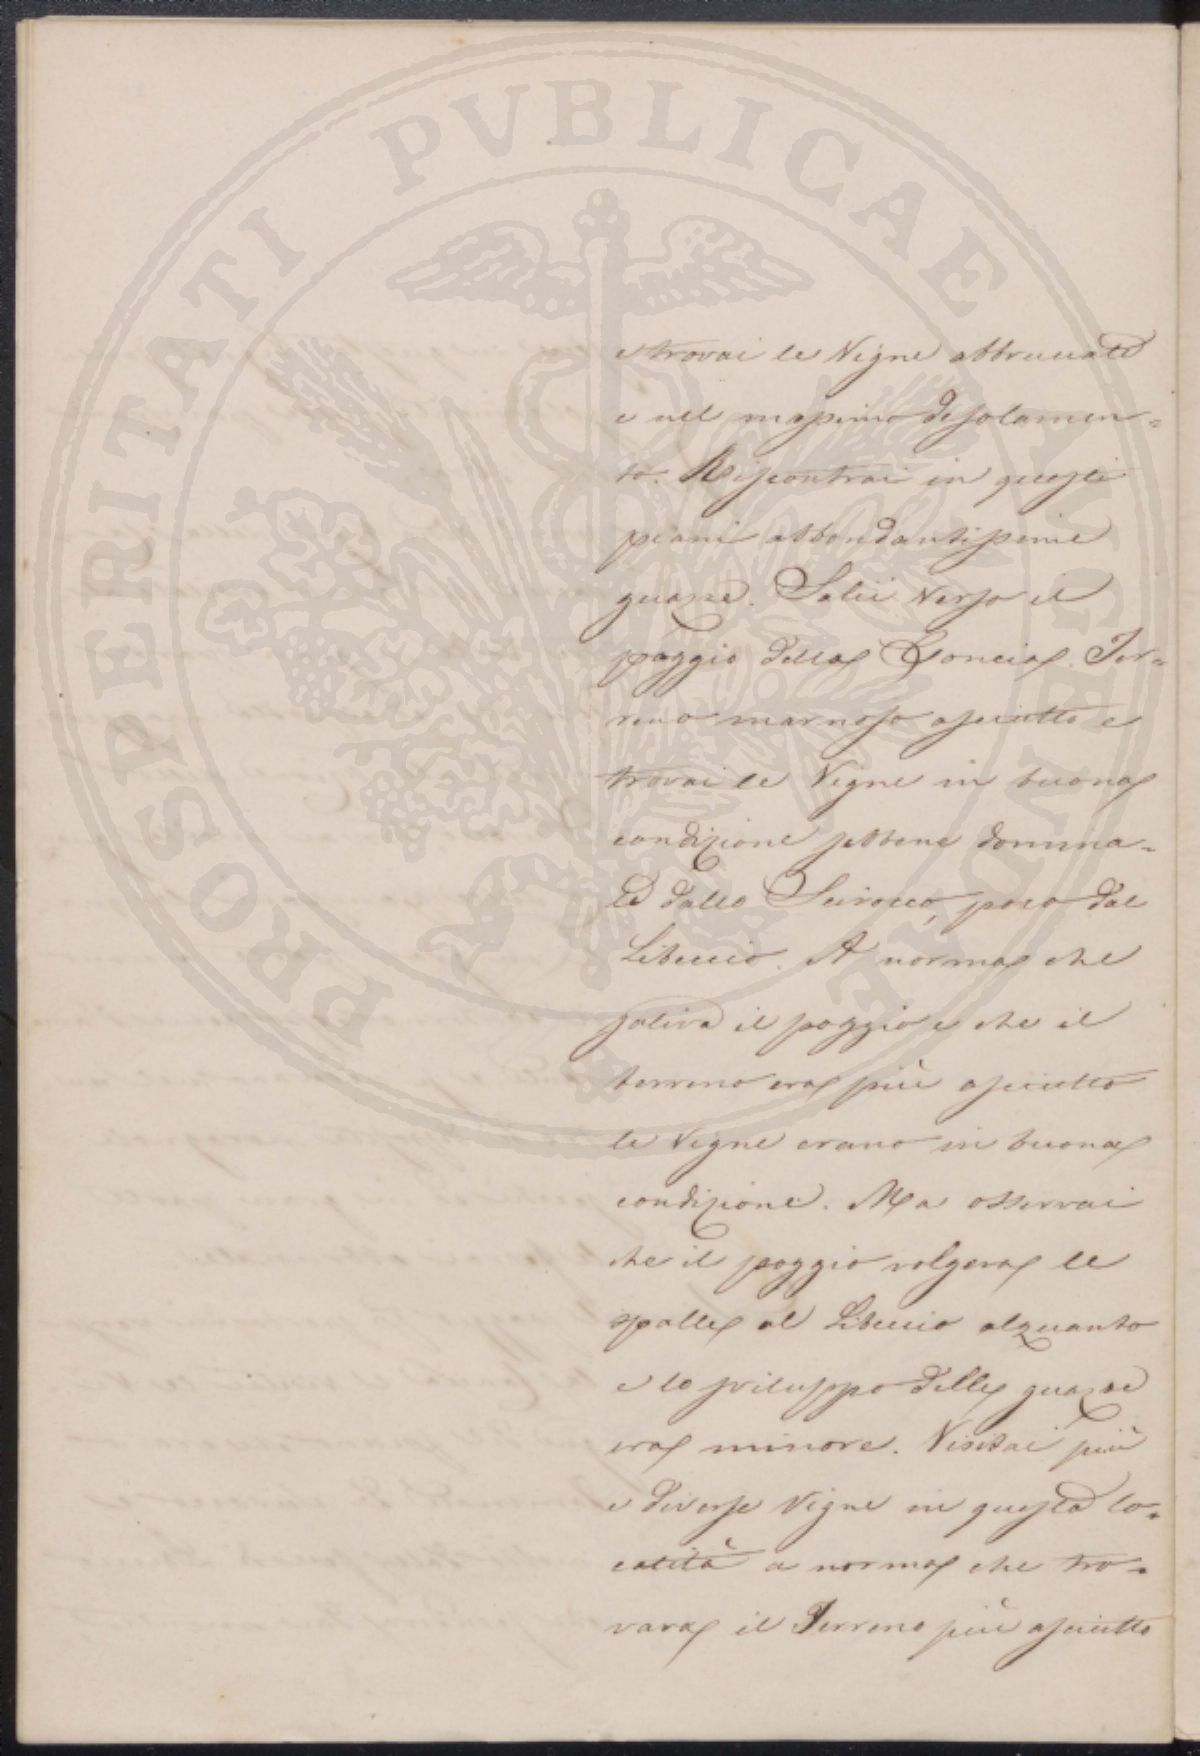 PROSPERITATI PUBLICAE AUGENDAE
e trovai le Vigne abbruciate
e nel massimo desolamen=
to. Riscontrai in questi
piani abbondantissime
guazze. Salii verso il
poggio della Concia. Ter=
reno marnoso asciutto e
trovai le Vigne in buona
condizione sebbene domina=
te dallo Scirocco, poco dal
Libeccio. A norma che
saliva il poggio e che il
terreno era più asciutto
le Vigne erano in buona
condizione. Ma osservai
che il poggio volgeva le
spalle al Libeccio alquanto
e lo sviluppo delle guazze
era minore. Visitai più
e diverse Vigne in questa lo=
calità a norma che tro=
vava il Terreno più asciutto